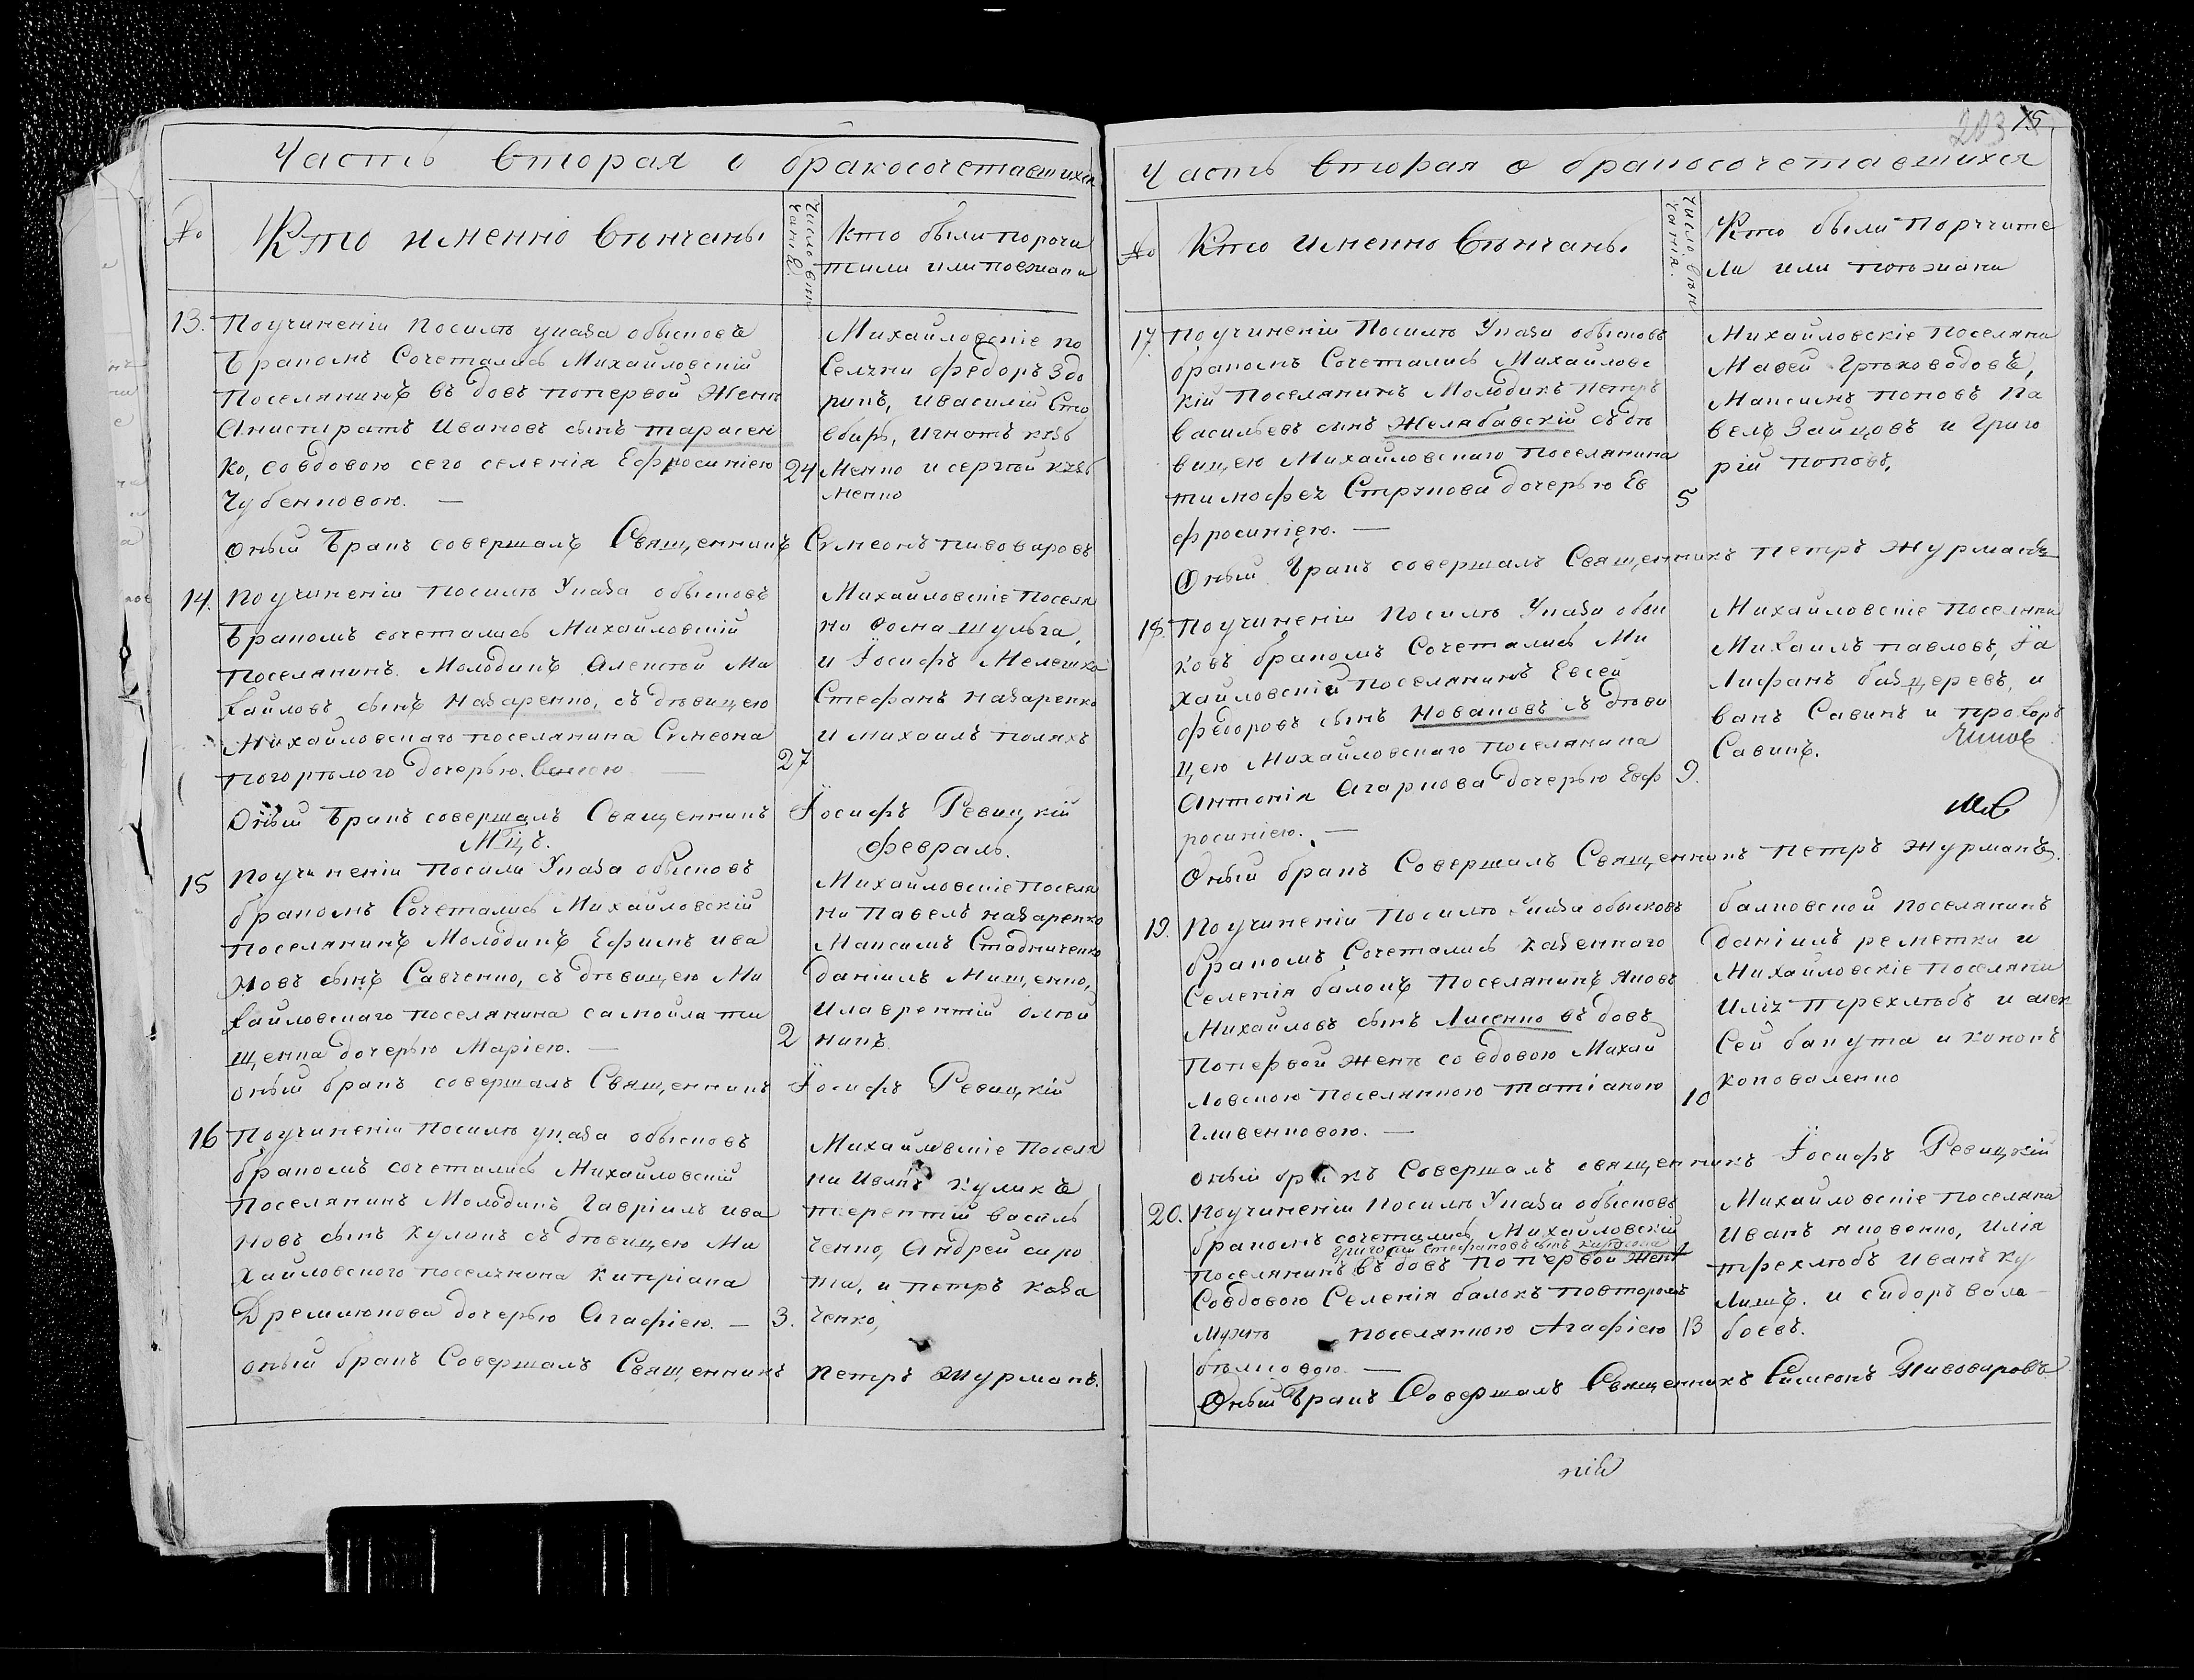 Часть вторая о бракосочетавшихся
№
Кто именно вѣнчаны
Число вѣн
чанiя
Кто были поручи
тили или поезжани
13.
По учиненiи по силѣ указа обысковъ
бракомъ сочетались Михайловскiй
поселянинъ вдовъ по первой женѣ
Анастратъ Ивановъ сынъ Тарасен
ко, со вдовою сего селенiя Ефросинiею
Чубенковою. —
24
Михайловскiе по
селяни Федоръ Здо
рикъ, и Василiй Сто
вбиръ, Игнатъ Кузь
менко и Сергѣй Кузь
менко
оный бракъ совершалъ Священникъ Сѵмеонъ Пивоваровъ
14.
По учиненiи по силѣ Указа обысковъ
бракомъ сочетались Михайловскiй
поселянинъ Молодикъ Алексѣй Ми
хайловъ сынъ Назаренко, съ дѣвицею
Михайловскаго поселянина Сѵмеона
Погорѣлого дочерью
27
Михайловскiе поселя
ни Ѳома Шульга,
и Iосифъ Мелешко
Стефанъ Назаренко
и Михаилъ Полякъ
Оный бракъ совершалъ Священникъ Iосифъ Ревицкiй
Мцъ. Февраль.
15
По учиненiи по сили Указа обысковъ
бракомъ Сочетались Михайловскiй
поселянинъ Молодикъ Ефимъ Ива
новъ сынъ Савченко, съ дѣвицею Ми
хайловскаго поселянина Самойла Ти
щенка дочерью Марiею. —
2
Михайловскiе поселя
ни Павелъ Назаренко
Максимъ Стадниченко
Данiилъ Мищенко,
и Лаврентiй Олѣй
никъ
оный бракъ совершалъ Священникъ Iосифъ Ревицкiй
16
По учиненiи по силѣ указа обысковъ
бракомъ сочетались Михайловскiй
поселянинъ Молодикъ Гаврiилъ Ива
новъ сынъ Куликъ съ дѣвицею Ми
хайловского поселянина Кипрiана
Дремлюкова дочерью Агафiею. —
3.
Михайловскiе поселя
ни Иванъ Куликъ
Терентiй Василь
ченко, Андрей Сиро
та, и Петръ Каза
ченко,
оный бракъ Совершалъ Священникъ Петръ Журманъ.
203 15.
Часть вторая о бракосочетавшихся
№
Кто именно вѣнчаны
Число вѣн
чанiя.
Кто были поручите
ли или поезжани
17.
По учиненiи по силѣ Указа обысковъ
бракомъ Сочетались Михайловс
кiй поселянинъ Молодикъ Петръ
Васильевъ сынъ Желябавскiй съ дѣ
вицею Михайловскаго поселянина
Тимофея Стрюкова дочерью Ев
фросинiею. —
5
Михайловскiе поселяни
Маѳей Грѣховодовъ,
Максимъ Поповъ Па
велъ Зайцовъ и Григо
рiй Поповъ,
Оный бракъ совершалъ Священникъ Петръ Журманъ
18.
По учиненiи по силѣ Указа обыс
ковъ бракомъ Сочетались Ми
хайловскiй поселянинъ Евсей
Федоровъ сынъ Новаковъ съ дѣви
цею Михайловскаго поселянина
Антонiя Агаркова дочерью Евф
росинiею. —
9.
Михайловскiе поселяни
Михаилъ Павловъ, Га
лифанъ Бахцеревъ, и
ванъ Савинъ и Прохоръ
Савинъ.
Оный бракъ Совершалъ Священникъ Петръ Журманъ.
19.
По учиненiи по силѣ Указа обысковъ
бракомъ Сочетались казенного
селенiя Балокъ поселянинъ Яковъ
Михайловъ сынъ Лисенко вдовъ
по первой женѣ со вдовою Михай
ловскою поселянкою Татiаною
Гливенковою. —
10
Балковской поселянинъ
Данiилъ Реметка и
Михайловскiе поселяни
Илiя Трехлѣбъ и Алек
сей Бакута и Кононъ
Коноваленко
оный бракъ Совершалъ священникъ Iосифъ Ревицкiй
20.
По учиненiи по силѣ Указа обысковъ
бракомъ сочетались Михайловскiй
Григорiй Стефановъ сынъ
поселянинъ вдовъ по первой женѣ
со вдовою Селенiя Балокъ по второмъ
мужѣ поселянкою Агафiею
Бѣликовою —
13
Михайловскiе поселяни
Иванъ Яковенко, Илiя
Трехлѣбъ Иванъ Ку
лишъ. и Сидоръ Вала
боевъ.
Оный бракъ Совершалъ Священникъ Симеонъ Пивоваровъ